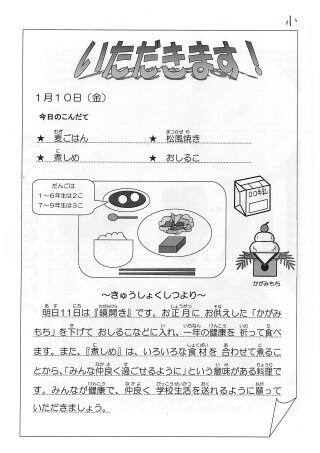 小
いただきます!
1月10日(金)
今日のこんだて
★ 麦ごはん ★ 松風焼き
★ 煮しめ ★ おしるこ
だんごは
1~6年生は2こ
7~9年生は3こ
かがみもち
~きゅうしょくしつより~
明日11日は『鏡開き』です。お正月に お供えした「かがみ
もち」を下げて おしるこなどに入れ、一年の健康を 祈って食べ
ます。また、『煮しめ』は、いろいろな食材を 合わせて煮るこ
とから、「みんな仲良く過ごせるように」という意味がある料理で
す。みんなが健康で、仲良く 学校生活を送れるように願って
いただきましょう。